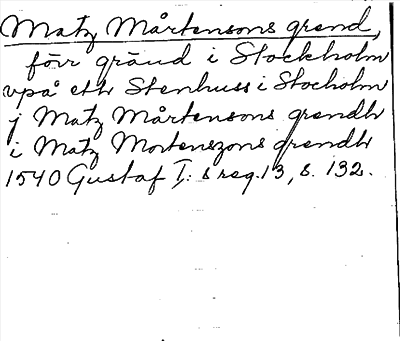 Matz Mårtensons grend,
förr gränd i Stockholm
vpå ett Stenhuss i Stocholm
j Matz Mårtensons grendh
i Matz Mortenszons grendh
1540 Gustaf I: s reg. 13, s. 132.